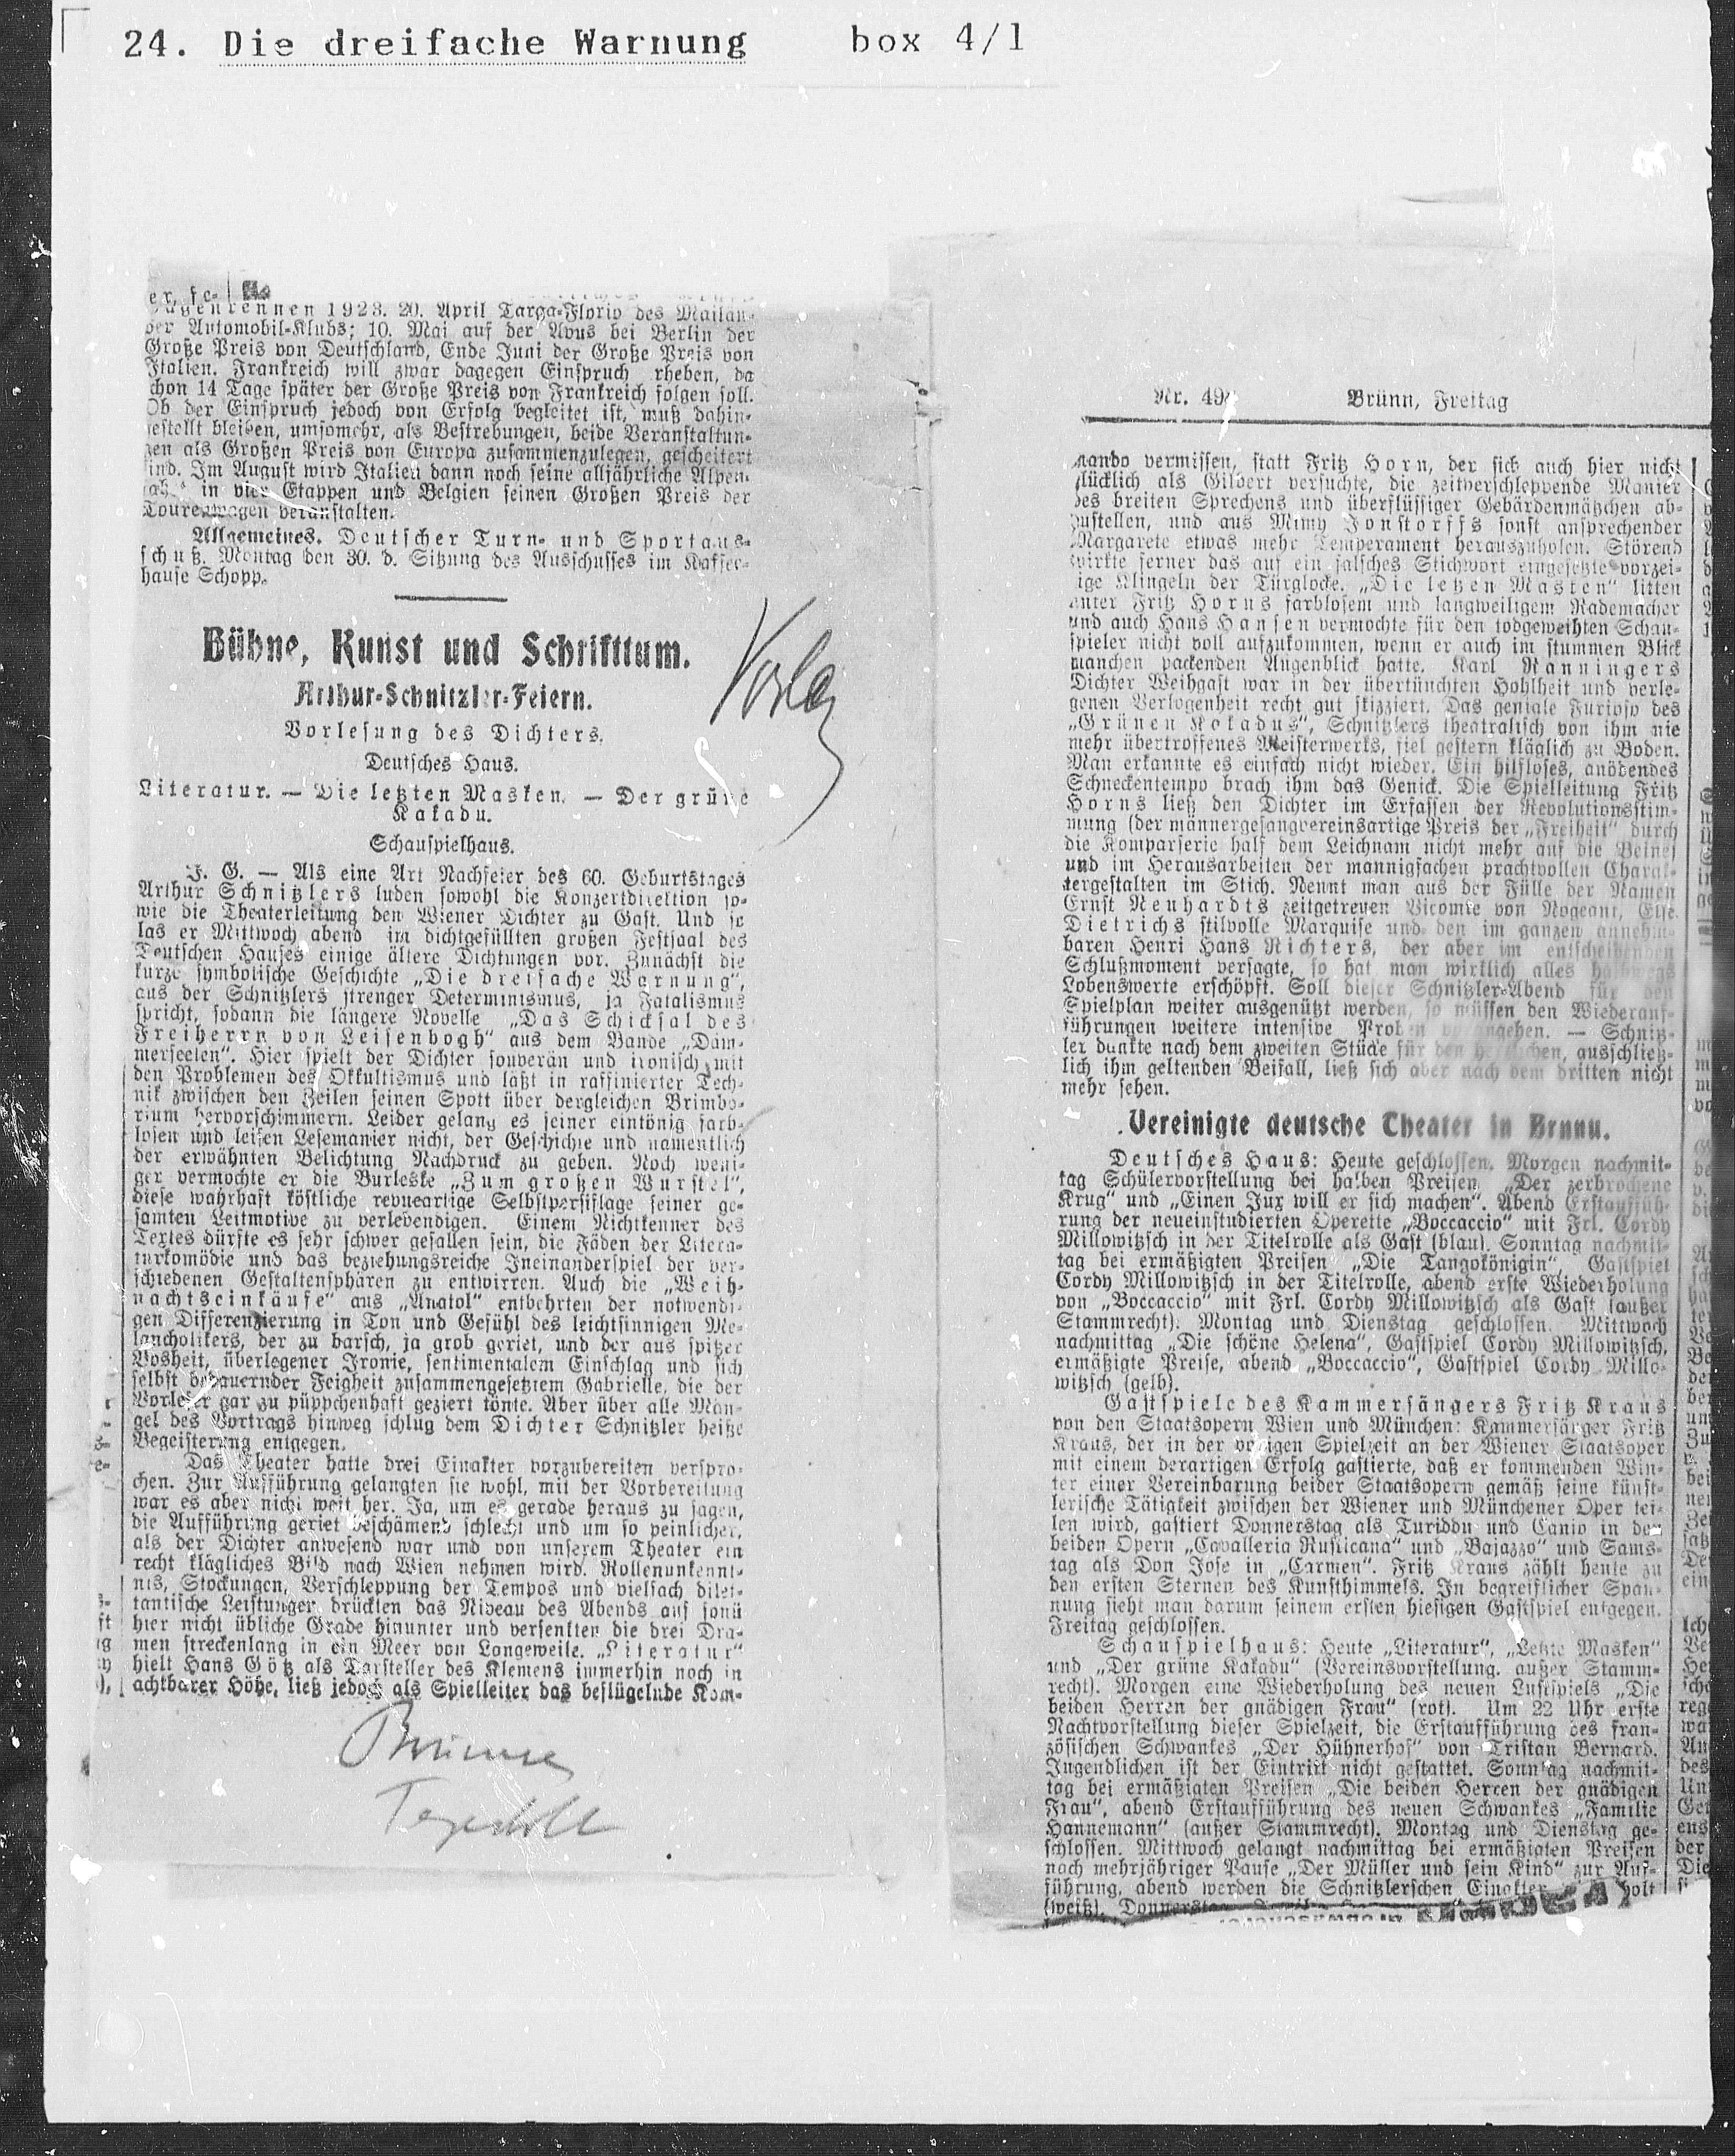 24. Die dreifache Warnung box 4/1
er, fe-
rennen 1923. 20. April Targa-Florio des Mailän-
der Automobil-Klubs; 10. Mai auf der Avus bei Berlin der
Große Preis von Deutschland, Ende Juni der Große Preis von
Italien. Frankreich will zwar dagegen Einspruch rheben, da
schon 14 Tage später der Große Preis von Frankreich folgen soll.
Ob der Einspruch jedoch von Erfolg begleitet ist, muß dahin-
gestellt bleiben, umsomehr, als Bestrebungen, beide Veranstaltun-
gen als Großen Preis von Europa zusammenzulegen, gescheitert
sind. Im August wird Italien dann noch seine alljährliche Alpen-
in vier Etappen und Belgien seinen Großen Preis der
Tourenwagen veranstalten.
Allgemeines. Deutscher Turn- und Sportaus-
schuß. Montag den 30. d. Sitzung des Ausschusses im Kaffee-
hause Schopp.
Bühne, Kunst und Schrifttum.
Arthur-Schnitzler-Feiern.
Vorlesung des Dichters.
Deutsches Haus.
Literatur. — Die letzten Masken. — Der grüne
Kakadu.
Schauspielhaus.
J. G. — Als eine Art Nachfeier des 60. Geburtstages
Arthur Schnitzlers luden sowohl die Konzertdirektion so-
wie die Theaterleitung den Wiener Dichter zu Gast. Und so
las er Mittwoch abend im dichtgefüllten großen Festsaal des
Deutschen Hauses einige ältere Dichtungen vor. Zunächst die
kurze symbolische Geschichte „Die dreifache Warnung“,
aus der Schnitzlers strenger Determinismus, ja Fatalismus
spricht, sodann die längere Novelle „Das Schicksal des
Freiherrn von Leisenbogh“ aus dem Bande „Däm-
merseelen“. Hier spielt der Dichter souverän und ironisch mit
den Problemen des Okkultismus und läßt in raffinierter Tech-
nik zwischen den Zeilen seinen Spott über dergleichen Brimbo-
rium hervorschimmern. Leider gelang es seiner eintönig farb-
losen und leisen Lesemanier nicht, der Geschichte und namentlich
der erwähnten Belichtung Nachdruck zu geben. Noch weni-
ger vermochte er die Burleske „Zum großen Wurstel“,
diese wahrhaft köstliche revueartige Selbstpersiflage seiner ge-
samten Leitmotive zu verlebendigen. Einem Nichtkenner des
Textes dürfte es sehr schwer gefallen sein, die Fäden der Litera-
turkomödie und das beziehungsreiche Ineinanderspiel der ver-
schiedenen Gestaltensphären zu entwirren. Auch die „Weih-
nachtseinkäufe“ aus „Anatol“ entbehrten der notwendi-
gen Differenzierung in Ton und Gefühl des leichtsinnigen Me-
lancholikers, der zu barsch, ja grob geriet, und der aus spitzer
Bosheit, überlegener Ironie, sentimentalem Einschlag und sich
selbst bedauernder Feigheit zusammengesetztem Gabrielle, die der
Vorleser gar zu püppchenhaft geziert tönte. Aber über alle Män-
gel des Vortrags hinweg schlug dem Dichter Schnitzler heiße
Begeisterung entgegen.
Das Theater hatte drei Einakter vorzubereiten verspro-
chen. Zur Aufführung gelangten sie wohl, mit der Vorbereitung
war es aber nicht weit her. Ja, um es gerade heraus zu sagen,
die Aufführung geriet beschämend schlecht und um so peinlicher,
als der Dichter anwesend war und von unserem Theater ein
recht klägliches Bild nach Wien nehmen wird. Rollenunkennt-
nis, Stockungen, Verschleppung der Tempos und vielfach dilet-
tantische Leistungen drückten das Niveau des Abends auf sonst
hier nicht übliche Grade hinunter und versenkten die drei Dra-
men streckenlang in ein Meer von Langeweile. „Literatur“
hielt Hans Götz als Darsteller des Klemens immerhin noch in
achtbarer Höhe, ließ jedoch als Spielleiter das beflügelnde Kom-
Brünner
Tagesbote
Nr. 49
Brünn, Freitag
mando vermissen, statt Fritz Horn, der sich auch hier nicht
glücklich als Gilbert versuchte, die zeitverschleppende Manier
des breiten Sprechens und überflüssiger Gebärdenmätzchen ab-
zustellen, und aus Mimy Jonstorffs sonst ansprechender
Margarete etwas mehr Temperament herauszuholen. Störend
wirkte ferner das auf ein falsches Stichwort eingesetzte vorzei-
tige Klingeln der Türglocke. „Die letzen Masken“ litten
unter Fritz Horns farblosem und langweiligem Rademacher
und auch Hans Hansen vermochte für den todgeweihten Schau-
spieler nicht voll aufzukommen, wenn er auch im stummen Blick
manchen packenden Augenblick hatte. Karl Ranningers
Dichter Weihgast war in der übertünchten Hohlheit und verle-
genen Verlogenheit recht gut skizziert. Das geniale Furioso des
„Grünen Kokadus“, Schnitzlers theatralisch von ihm nie
mehr übertroffenes Meisterwerks, fiel gestern kläglich zu Boden.
Man erkannte es einfach nicht wieder. Ein hilfloses, anödendes
Schneckentempo brach ihm das Genick. Die Spielleitung Fritz
Horns ließ den Dichter im Erfassen der Revolutionsstim-
mung (der männergesangvereinsartige Preis der „Freiheit“ durch
die Komparserie half dem Leichnam nicht mehr auf die Beine)
und im Herausarbeiten der mannigfachen prachtvollen Charak-
tergestalten im Stich. Nennt man aus der Fülle der Namen
Ernst Neuhardts zeitgetreuen Vicomte von Nogeant, Else
Dietrichs stilvolle Marquise und den im ganzen annehm-
baren Henri Hans Richters, der aber im entscheidenden
Schlußmoment versagte, so hat man wirklich alles halbwegs
Lobenswerte erschöpft. Soll dieser Schnitzler-Abend für den
Spielplan weiter ausgenützt werden, so müssen den Wiederauf-
führungen weitere intensive Proben vorangehen. — Schnitz-
ler dankte nach dem zweiten Stücke für den herzlichen, ausschließ-
lich ihm geltenden Beifall, ließ sich aber nach dem dritten nicht
mehr sehen.
Vereinigte deutsche Theater in Brünn.
Deutsches Haus: Heute geschlossen. Morgen nachmit-
tag Schülervorstellung bei halben Preisen „Der zerbrochene
Krug“ und „Einen Jux will er sich machen“. Abend Erstauffüh-
rung der neueinstudierten Operette „Boccaccio“ mit Frl. Cordy
Millowitzsch in der Titelrolle als Gast (blau). Sonntag nachmit-
tag bei ermäßigten Preisen „Die Tangokönigin“, Gastspiel
Cordy Millowitzsch in der Titelrolle, abend erste Wiederholung
von „Boccaccio“ mit Frl. Cordy Millowitzsch als Gast (außer
Stammrecht). Montag und Dienstag geschlossen. Mittwoch
nachmittag „Die schöne Helena“, Gastspiel Cordy Millowitzsch,
ermäßigte Preise, abend „Boccaccio“, Gastspiel Cordy Millo-
witzsch (gelb).
Gastspiele des Kammersängers Fritz Kraus
von den Staatsopern Wien und München: Kammersänger Fritz
Kraus, der in der vorigen Spielzeit an der Wiener Staatsoper
mit einem derartigen Erfolg gastierte, daß er kommenden Win-
ter einer Vereinbarung beider Staatsopern gemäß seine künst-
lerische Tätigkeit zwischen der Wiener und Münchener Oper tei-
len wird, gastiert Donnerstag als Turiddu und Canio in den
beiden Opern „Cavalleria Rusticana“ und „Bajazzo“ und Sams-
tag als Don Jose in „Carmen“. Fritz Kraus zählt heute zu
den ersten Sternen des Kunsthimmels. In begreiflicher Span-
nung sieht man darum seinem ersten hiesigen Gastspiel entgegen.
Freitag geschlossen.
Schauspielhaus: Heute „Literatur“, „Letzte Masken“
und „Der grüne Kakadu“ (Vereinsvorstellung, außer Stamm-
recht). Morgen eine Wiederholung des neuen Lustspiels „Die
beiden Herren der gnädigen Frau“ (rot). Um 22 Uhr erste
Nachtvorstellung dieser Spielzeit, die Erstaufführung des fran-
zösischen Schwankes „Der Hühnerhof“ von Tristan Bernard.
Jugendlichen ist der Eintritt nicht gestattet. Sonntag nachmit-
tag bei ermäßigten Preisen „Die beiden Herren der gnädigen
Frau“, abend Erstaufführung des neuen Schwankes „Familie
Hannemann“ (außer Stammrecht). Montag und Dienstag ge-
schlossen. Mittwoch gelangt nachmittag bei ermäßigten Preisen
nach mehrjähriger Pause „Der Müller und sein Kind“ zur Auf-
führung, abend werden die Schnitzlerschen Einakter holt
(weiß). Donnerstag